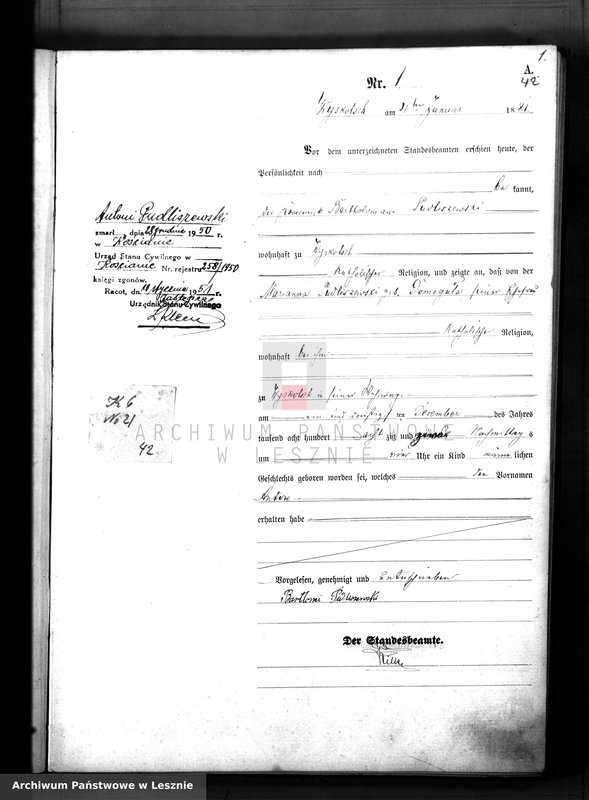 1.
A.
42
Nr. 1
Wyskotsch am 2ten Januar 1881.
Vor dem unterzeichneten Standesbeamten erschien heute, der
Persönlichkeit nach
be kannt,
der Bartholomaus Pudliszewski
wohnhaft zu Wyskotsch
katholischer Religion, und zeigte an, daß von der
Marianna Pudliszewski geb. Domogała seiner Ehefrau
katholischer Religion,
wohnhaft bei ihm
zu Wyskotsch in seiner Wohnung
am ein und dreißigsten Dezember des Jahres
tausend acht hundert acht zig und Nachmittag s
um Uhr ein Kind männ lichen
Geschlechts geboren worden sei, welches den Vornamen
Anton
erhalten habe
Vorgelesen, genehmigt und unterschrieben
Bartłomi Pudliszewski
Der Standesbeamte.
Antoni Pudliszewski
zmarł dnia 28 grudnia 1950 r.
w Kościanie
Urząd Stanu Cywilnego w
Kościanie Nr. rejestru 258/1950
księgi zgonów.
Racot, dn. 10 stycznia 1951 r.
Urzędnik Stanu Cywilnego
K 6
No 21
42
ARCHIWUM PAŃSTWOWE
W LESZNIE
Archiwum Państwowe w Lesznie